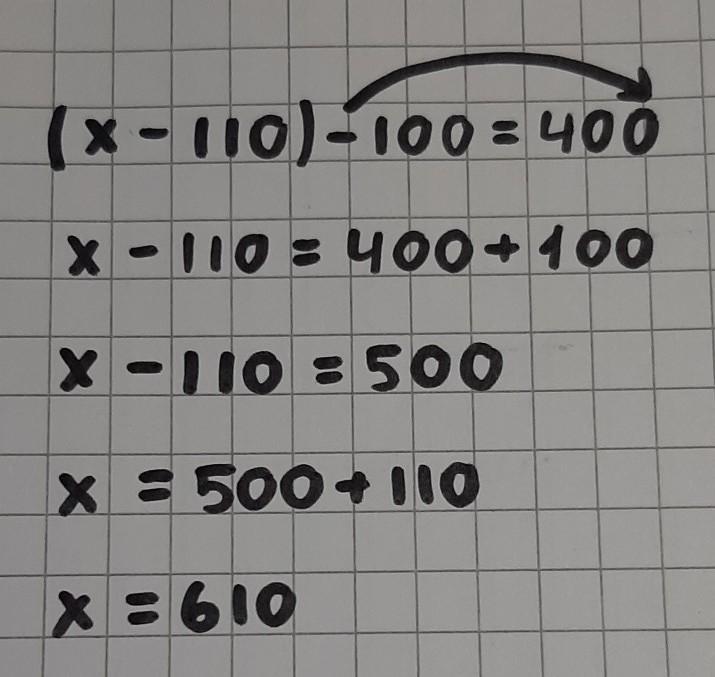 (x - 110) - 100 = 400
x - 110 = 400 + 100
x - 110 = 500
x = 500 + 110
x = 610